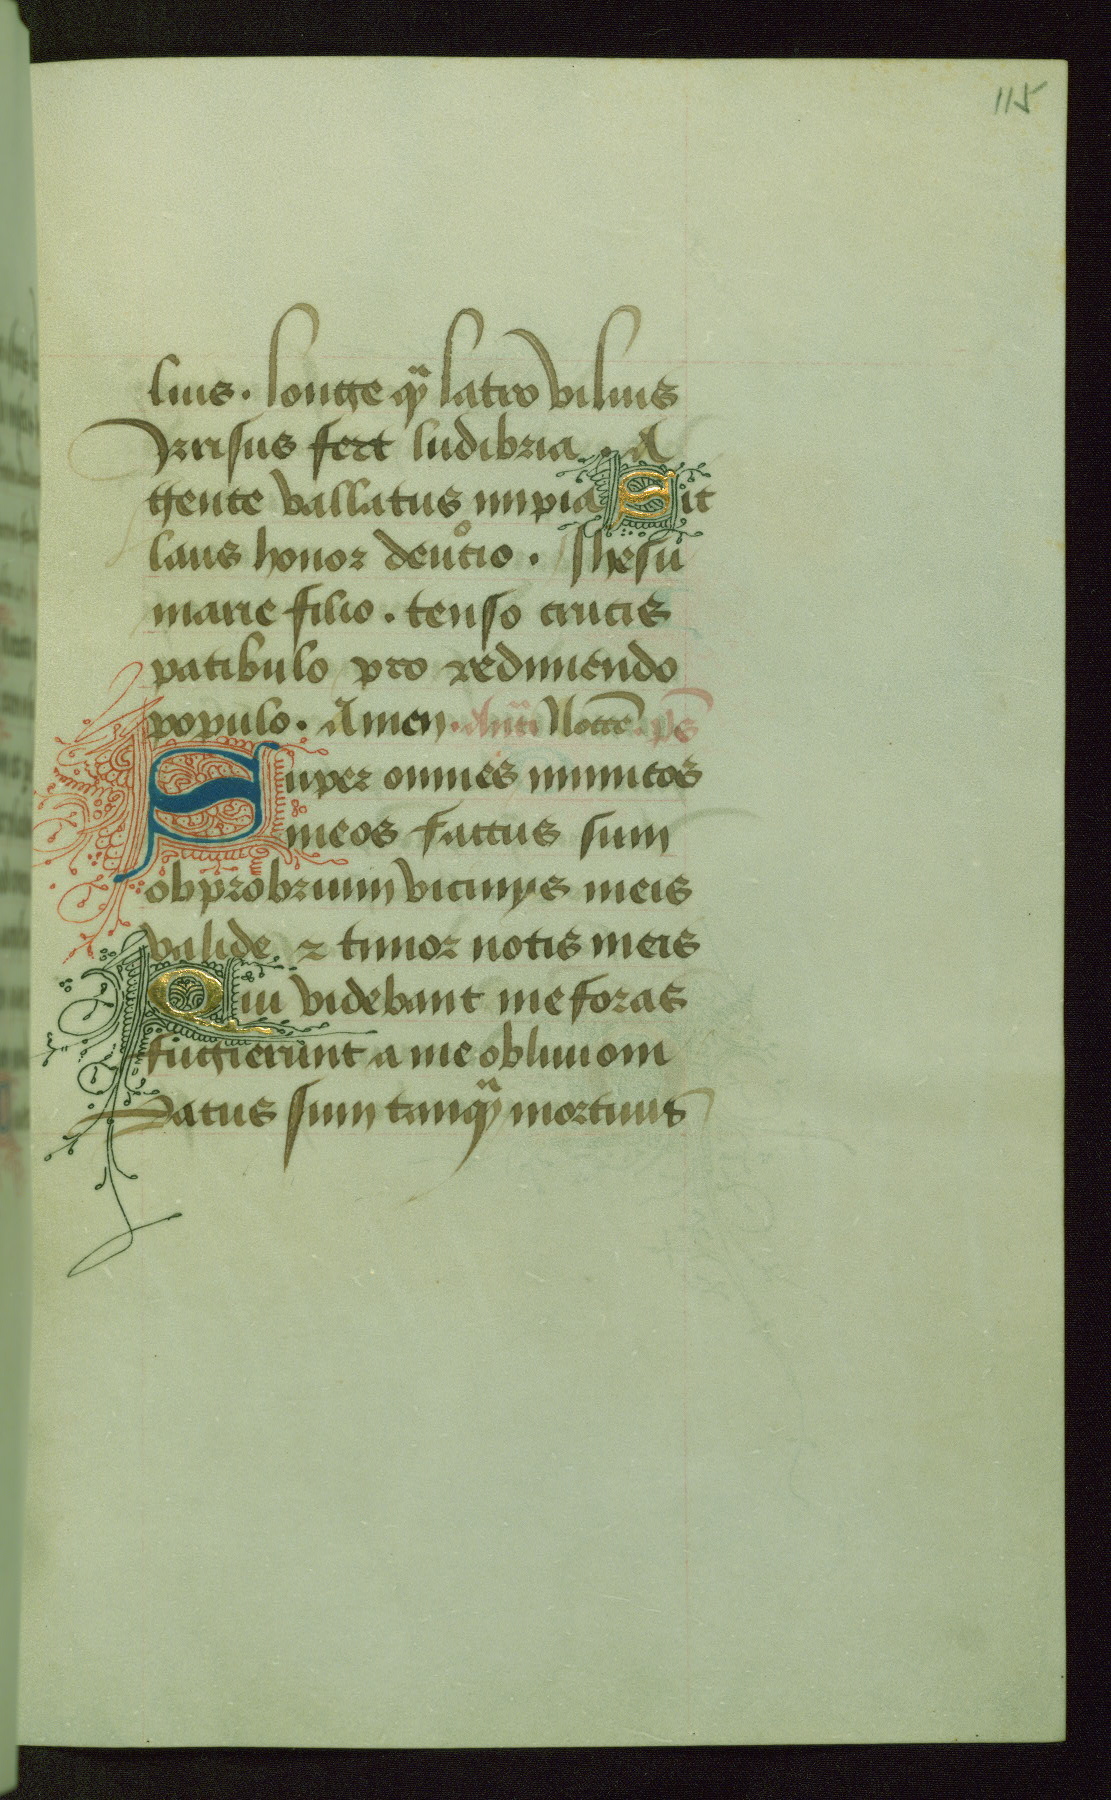 115
lius. longe qᷓ latro vilius
Irrisus fert ludibria. A
gente vallatus impia Sit
laus honor deuͦtio. Jhesu
marie filio. tenso crucis
patibulo pro redimendo
populo. Amen. ps̄
Super omnes inimicos
meos factus sum
obprobrium vicinys meis
valide ⁊ timor notis meis
Qui videbant me foras
fugierunt a me obliuioni
Datus sum tanqᷓ mortuus